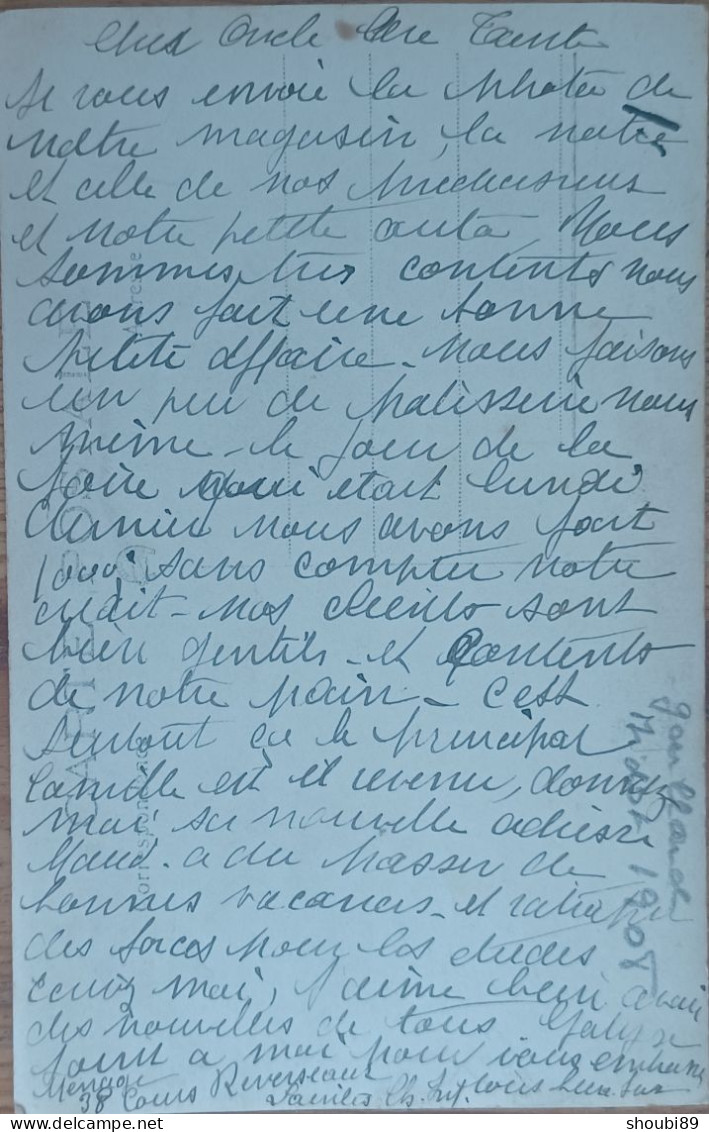 Cher Oncle Chère Tante
Je vous envoie la photo de
notre magasin, la notre
et celle de nos
et notre petite auto Nous
sommes très contents nous
avons fait une bonne
petite affaire - Nous faisons
un peu de patisserie nous
même - le jour de la
foire qui était lundi
dernier nous avons fait
1000 sans compter notre
crédit - nos clients sont
bien gentils - et contents
de notre pain - C'est
surtout ça le principal
Camille est il revenu, donnez
moi sa nouvelle adresse
Maud. a du passer de
bonnes vacances - et
des forces pour les études
Ecrivez moi, J'aime bien avoir
des nouvelles de tous
joint a moi pour vous embrasser
Ménage
38 Cours Reverseaux
Saintes Ch. Inf. tous
CARTE POSTALE
Correspondance
Adresse
1908
shoubi89